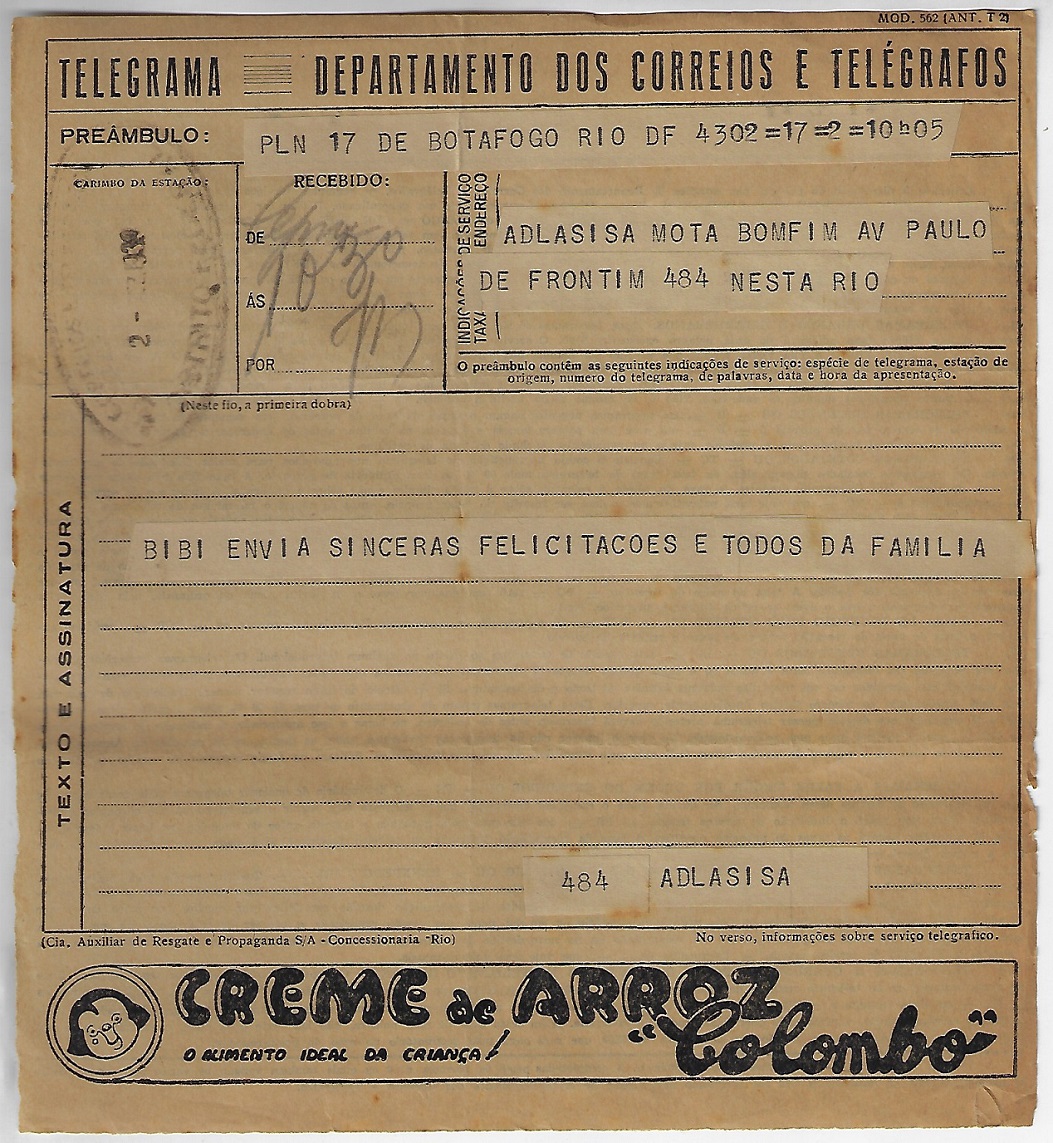 MOD. 562 (ANT. T 2)
TELEGRAMA DEPARTAMENTO DOS CORREIOS E TELÉGRAFOS
PREÂMBULO: PLN 17 DE BOTAFOGO RIO DF 4302=17=2=10h05
CARIMBO DA ESTAÇÃO:
2 -
RECEBIDO:
DE
ÁS
POR
INDICAÇÕES DE SERVIÇO
TAXA ENDEREÇO
ADLASISA MOTA BOMFIM AV PAULO
DE FRONTIM 484 NESTA RIO
O preâmbulo contêm as seguintes indicações de serviço: espécie de telegrama, estação de
origem, numero do telegrama, de palavras, data e hora da apresentação.
(Neste fio, a primeira dobra)
TEXTO E ASSINATURA
BIBI ENVIA SINCERAS FELICITACOES E TODOS DA FAMILIA
484 ADLASISA
(Cia. Auxiliar de Resgate e Propaganda S/A - Concessionaria - Rio)
No verso, informações sobre serviço telegrafico.
CREME de ARROZ
"Colombo"
O ALIMENTO IDEAL DA CRIANÇA!